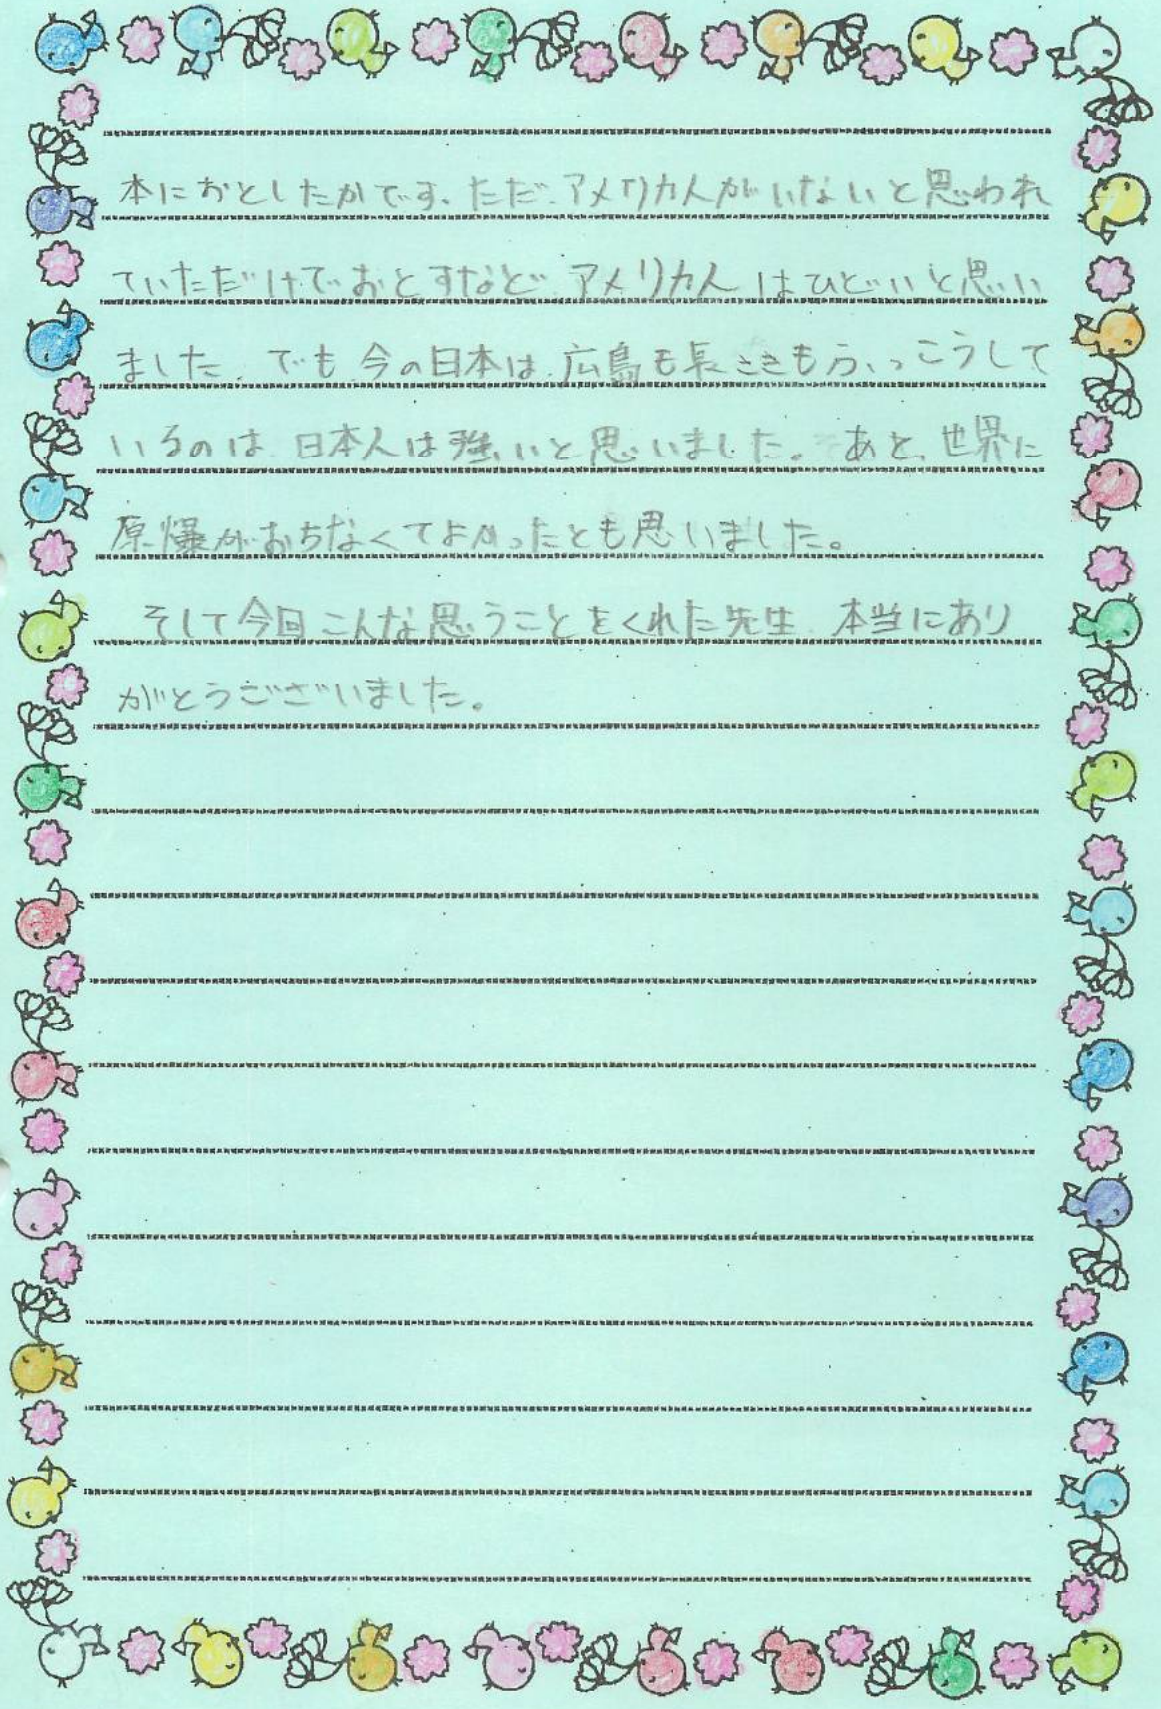 本におとしたかです。ただ、アメリカ人がいないと思われ
ていただけでおとすなど、アメリカ人はひどいと思い
ました。でも今の日本は、広島も長さきもふっこうして
いるのは、日本人は強いと思いました。あと、世界に
原爆がおちなくてよかったとも思いました。
そして今回こんな思うことをくれた先生、本当にあり
がとうございました。